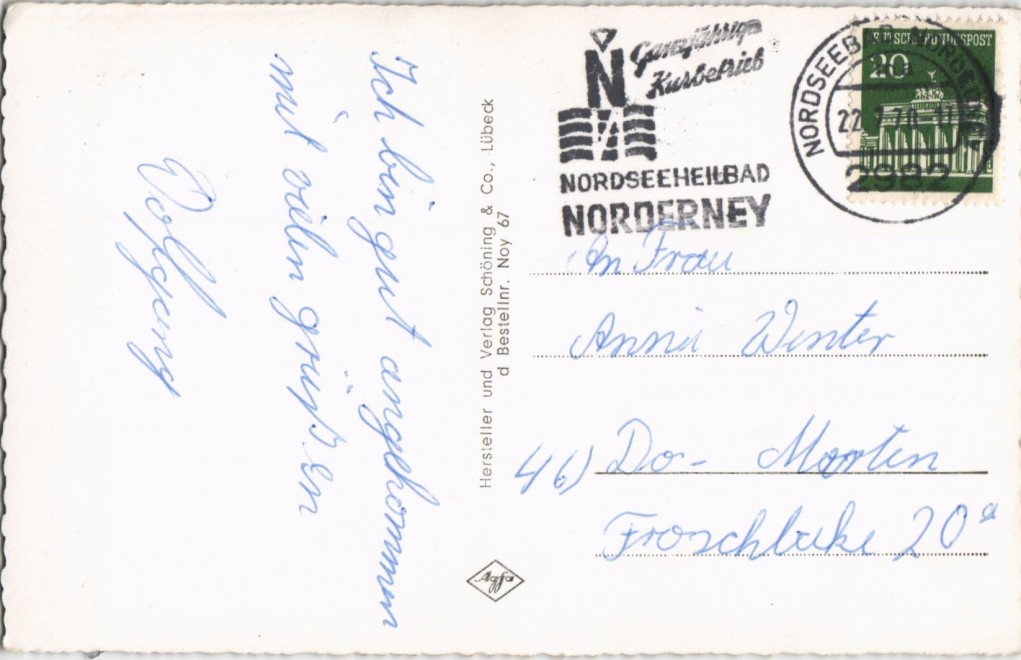 Ich bin gut angekommen
mit vielen grüßen
Wolfgang
Hersteller und Verlag Schöning & Co., Lübeck
d Bestellnr. Noy 67
Agfa
Ganzjähriger
Kurbetrieb
N
NORDSEEHEILBAD
NORDERNEY
NORDSEEBAD NORDERNEY
22
2982
DEUTSCHE BUNDESPOST
20
An Frau
Anni Winter
46) Do- Marten
Froschlake 20a